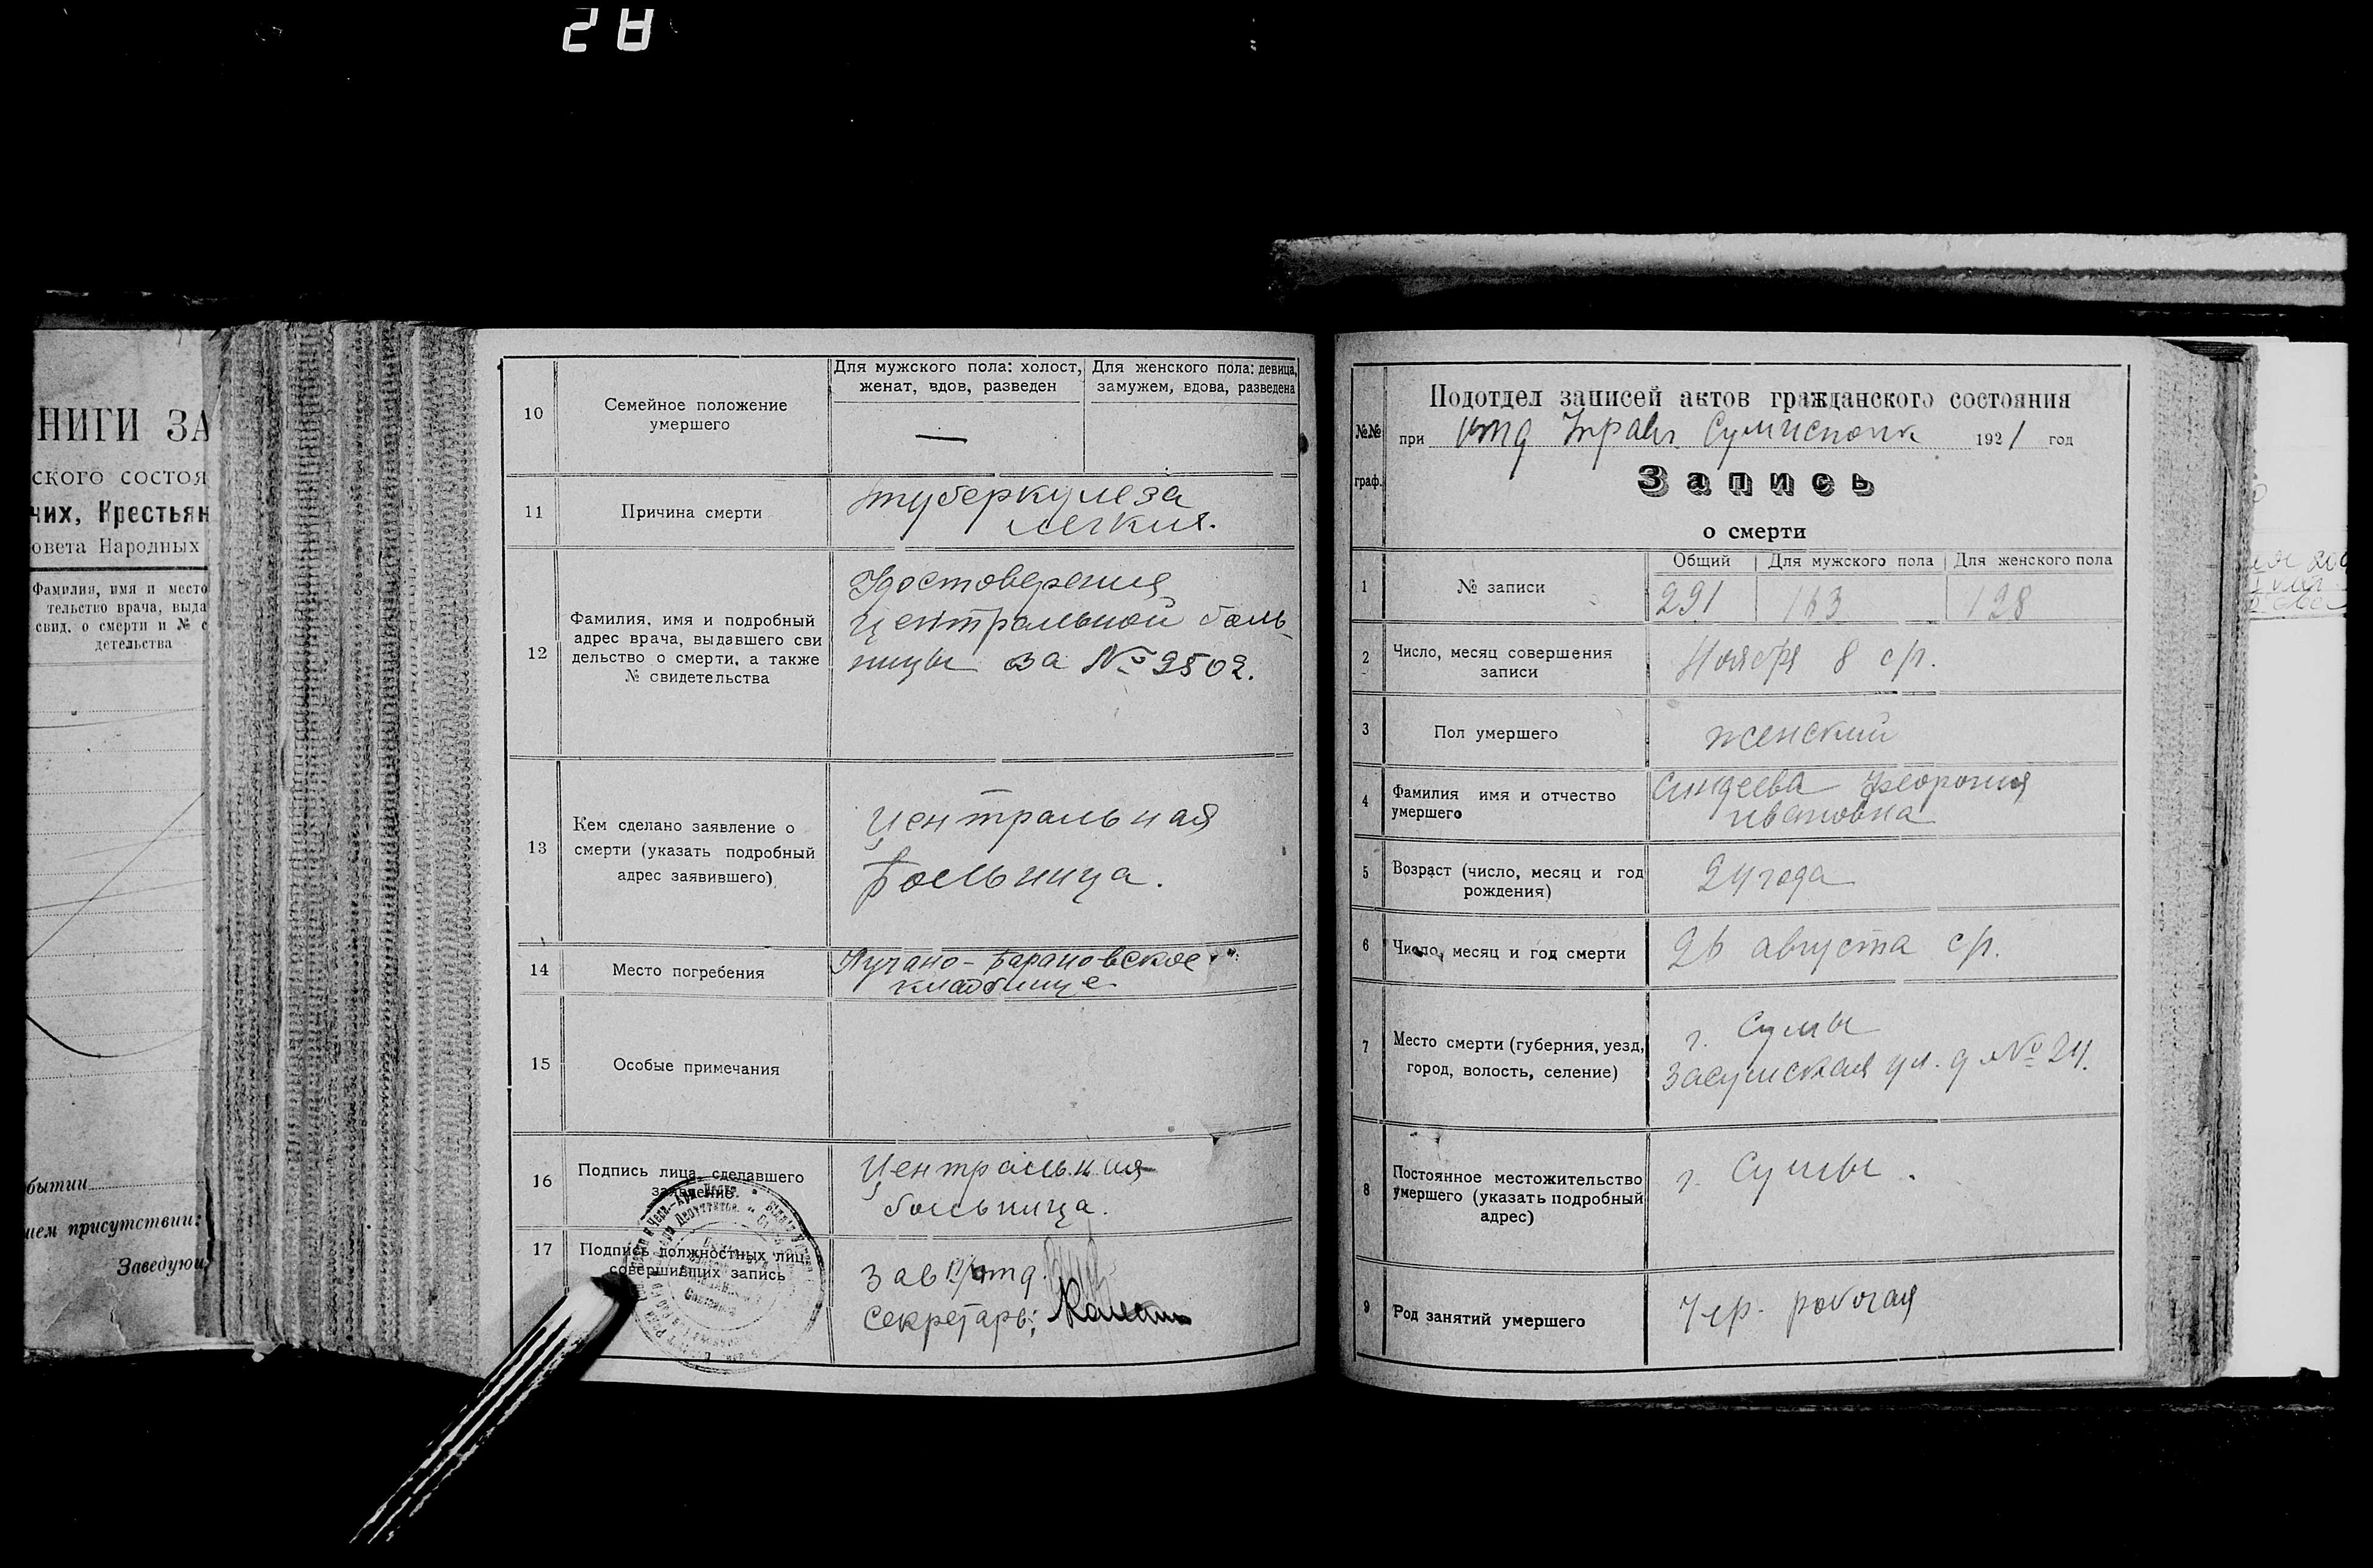 28
НИГИ ЗА
ского состоя
чих, Крестьян
овета Народных
Фамилия, имя и место
тельство врача, выда
свид. о смерти и № с
детельства
бытии
ием присутствии:
Заведующ
10
Семейное положение
умершего
Для мужского пола: холост,
женат, вдов, разведен
Для женского пола: девица,
замужем, вдова, разведена
—
11
Причина смерти
туберкулеза
легких.
12
Фамилия, имя и подробный
адрес врача, выдавшего сви
дельство о смерти, а также
№ свидетельства
Центральной боль
ницы за № 2502.
13
Кем сделано заявление о
смерти (указать подробный
адрес заявившего)
Центральная
Больница.
14
Место погребения
Лучано-Барановское
кладбище
15
Особые примечания
16
Подпись лица, сделавшего
заявление
Центральная
больница.
17
Подпись должностных лиц,
совершивших запись
Зав П/отд.
Секретарь:
№№
граф.
Подотдел записей актов гражданского состояния
при Отд Управл Сумисполк 1921 год
Запись
о смерти
1
№ записи
Общий
Для мужского пола
Для женского пола
291
163
128
2
Число, месяц совершения
записи
Ноября 8 с/г.
3
Пол умершего
женский
4
Фамилия имя и отчество
умершего
Синдеева
Ивановна
5
Возраст (число, месяц и год
рождения)
24 года
6
Число, месяц и год смерти
26 августа с/г.
7
Место смерти (губерния, уезд,
город, волость, селение)
г. Сумы
Засумская ул. д № 24.
8
Постоянное местожительство
умершего (указать подробный
адрес)
г. Сумы.
9
Род занятий умершего
Чер. рабочая